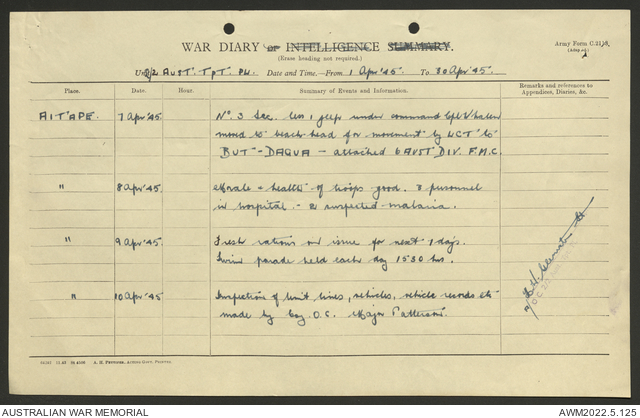 WAR DIARY or INTELLIGENCE SUMMARY.
(Erase heading not required.)
Army Form C.2118.
Unit 2 Aust. Tpt. Pl. Date and Time—From 1 Apr '45. To 30 Apr '45.
Place. Date. Hour. Summary of Events and Information. Remarks and references to Appendices, Diaries, &c.
AITAPE. 7 Apr '45 No. 3 Sec. less 1 jeep under command Cpl Whalen
moved to beach-head for movement by LCT to
BUT-DAGUA — attached 6 AUST DIV. F.M.C.
" 8 Apr '45 Morale & health of troops good. 3 personnel
in hospital - 2 suspected malaria.
" 9 Apr '45. Fresh rations on issue for next 7 days.
parade held each day 1530 hrs.
" 10 Apr '45 Inspection of Unit lines, vehicles, vehicle records etc
made by Coy O.C. Major Patterson.
A. H. Pettifer, Acting Govt. Printer.
AUSTRALIAN WAR MEMORIAL
AWM2022.5.125